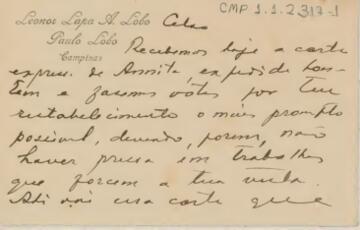 CMP 1.1.2.317-1
Leonor Lapa A. Lobo
Paulo Lobo
Campinas
Celso
Recebemos hoje a carta
express. de Annita, expedida hon-
tem e fazemos votos por teu
restabelecimento o mais prompto
possivel, devendo, porem, não
haver pressa em trabalhos
que forcem a tua vista.
Ahi vai essa carta que